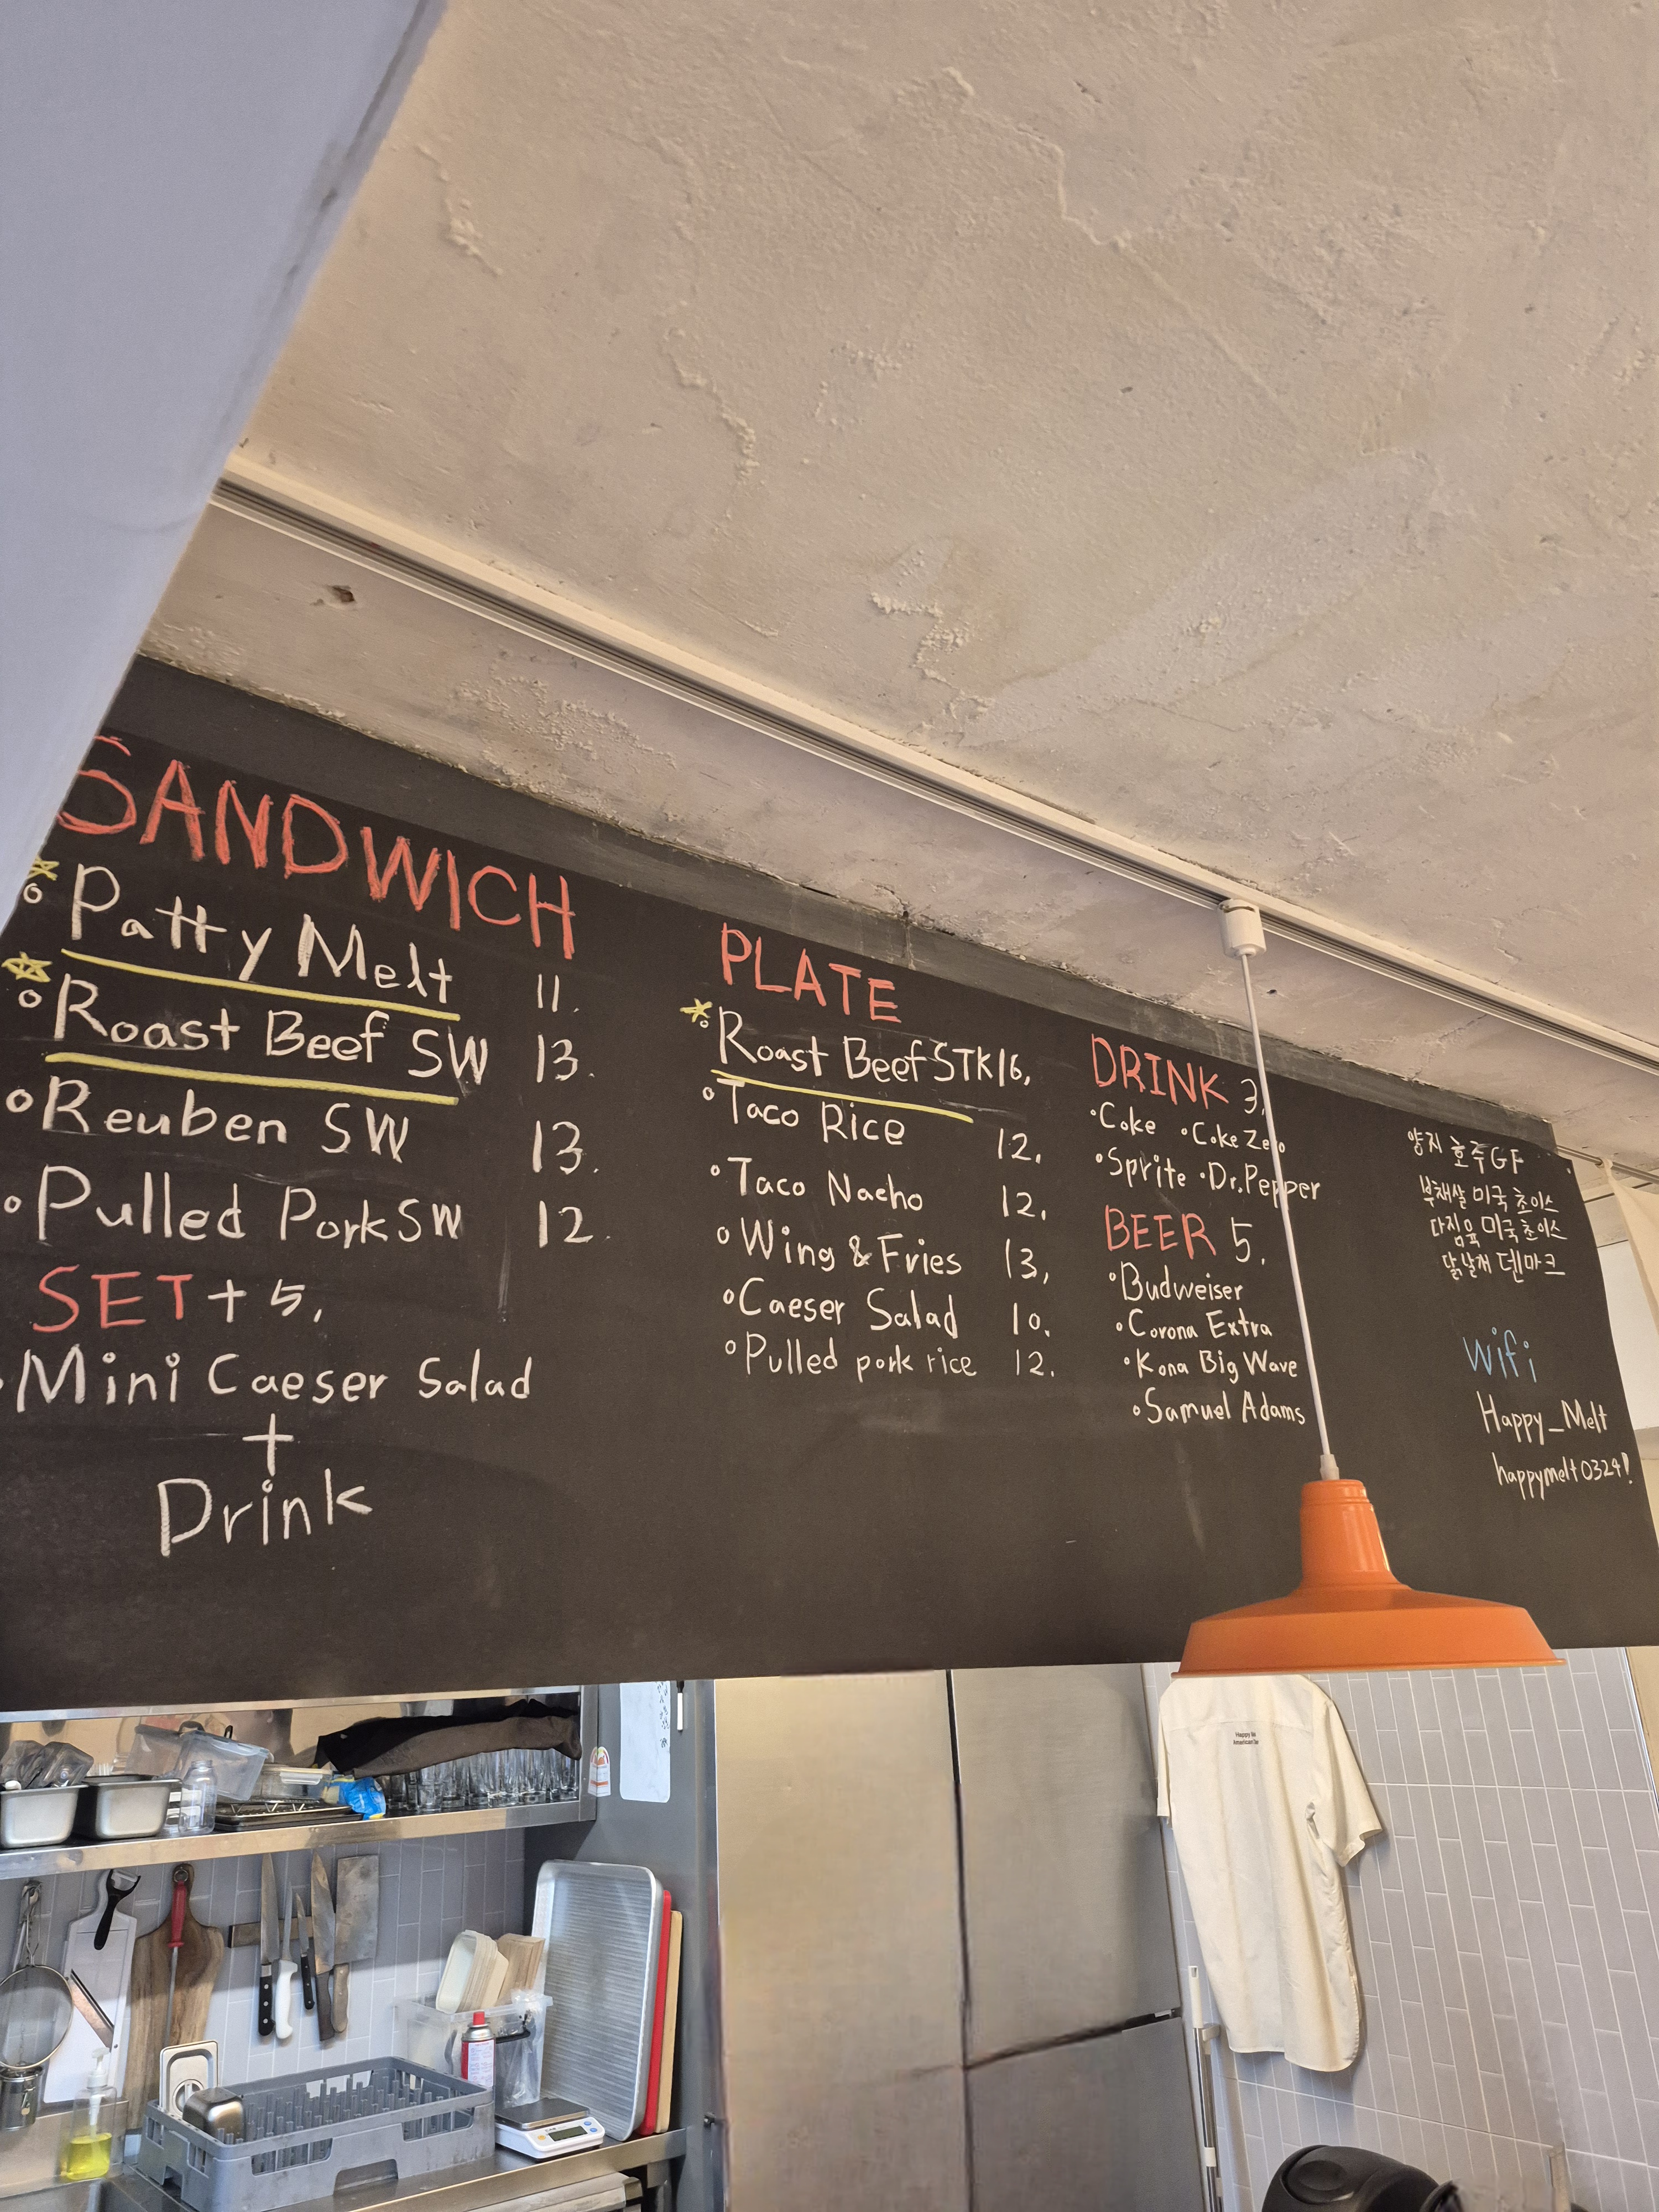 SANDWICH
Patty Melt 11.
Roast Beef SW 13.
Reuben SW 13.
Pulled Pork SW 12.
SET + 5.
Mini Caeser Salad
+
Drink
PLATE
Roast Beef STK 16.
Taco Rice 12.
Taco Nacho 12.
Wing & Fries 13.
Caeser Salad 10.
Pulled pork rice 12.
DRINK 3.
Coke Coke Zero
Sprite Dr.Pepper
BEER 5.
Budweiser
Corona Extra
Kona Big Wave
Samuel Adams
양지 호주 GF
부채살 미국 초이스
다짐육 미국 초이스
닭날개 덴마크
wifi
Happy_Melt
happymelt0324!
Happy
American